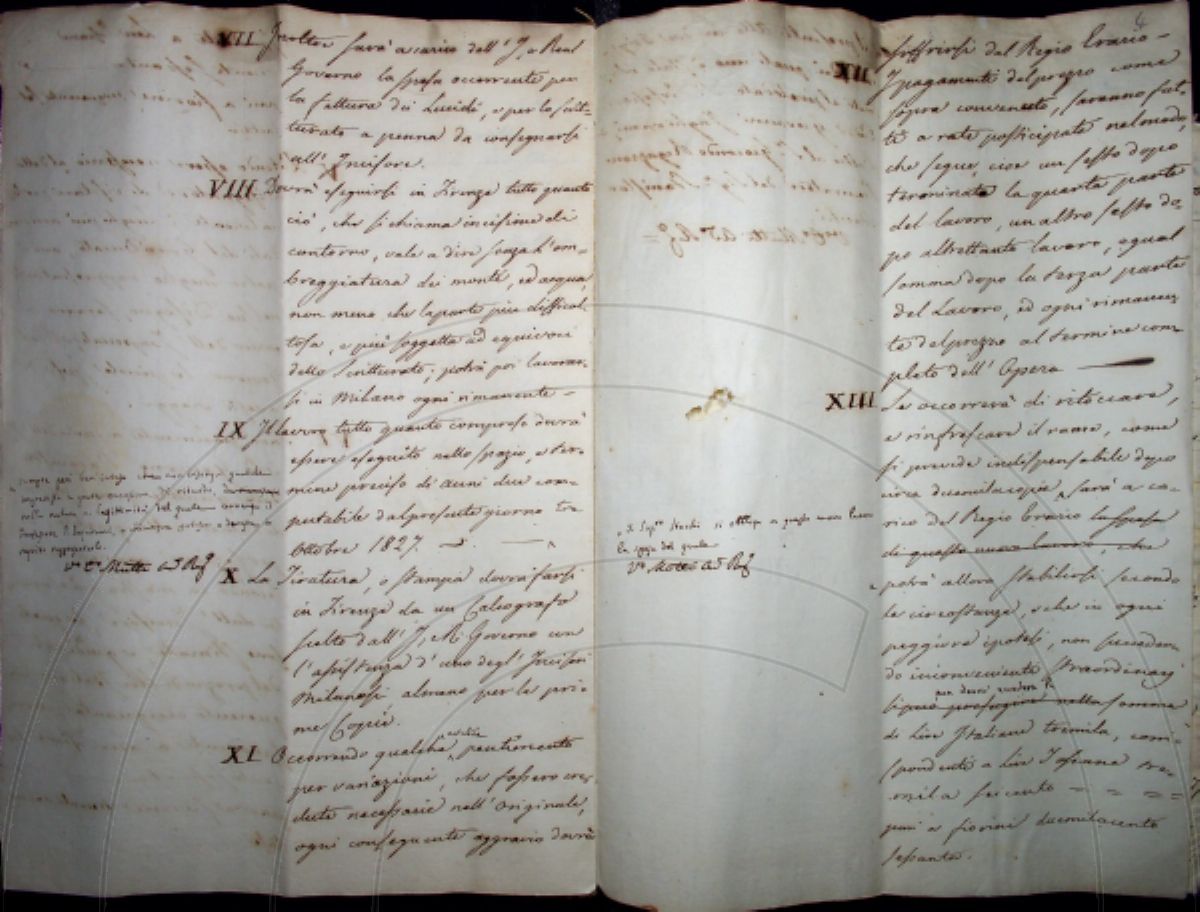 VII. Inoltre sarà a carico dell' I. e Real
Governo la spesa occorrente per
la fattura dei Lucidi, e per lo scrit-
turato a penna da consegnarsi
all' Incisore.
VIII. Dovrà eseguirsi in Firenze tutto quanto
ciò, che si chiama incisione di
contorno, vale a dire senza l'om-
breggiatura dei monti, ed acqua,
non meno che la parte più difficol-
tosa, e più soggetta ad equivoci
dello Scritturato; potrà poi lavorar-
si in Milano ogni rimanente -
IX Il lavoro tutto quanto compreso dovrà
essere eseguito nello spazio, e ter-
mine preciso di anni due com-
putabile dal presente giorno tre
Ottobre 1827.
X La Tiratura, o stampa dovrà farsi
in Firenze da un Calcografo
scelto dall' I. R. Governo con
l'assistenza d'uno degl' Incisori
Milanesi almeno per le pri-
me Copie.
XI Occorrendo qualche pentimento
per variazioni, che fossero cre-
dute necessarie nell' Originale,
ogni conseguente aggravio dovrà
sempre per ben inteso
Vo. Co. Mutti
4
soffrirsi dal Regio Erario -
XII. I pagamenti del prezzo come
sopra convenuto, saranno fat-
ti a rate posticipate nel modo,
che segue, cioè un sesto dopo
terminata la quarta parte
del lavoro, un altro sesto do-
po altrettanto lavoro, egual
somma dopo la terza parte
del Lavoro, ed ogni rimanen-
te del prezzo al termine com-
pleto dell' Opera
XIII Se occorrerà di ritoccare,
e rinfrescare il rame, come
si prevede indispensabile dopo
circa duemila copie, sarà a ca-
rico del Regio Erario la spesa
di questo nuovo lavoro, che
potrà allora stabilirsi secondo
le circostanze, e che in ogni
peggiore ipotesi, non succeden-
do inconvenienti straordinarj
non dovrà eccedere la
nella somma
di Lire Italiane tremila, corri-
spondenti a Lire Toscane tre-
mila seicento = = = =
pari a fiorini duemilacento
sessanta.
si obbliga a questo nuovo lavoro
la spesa del quale